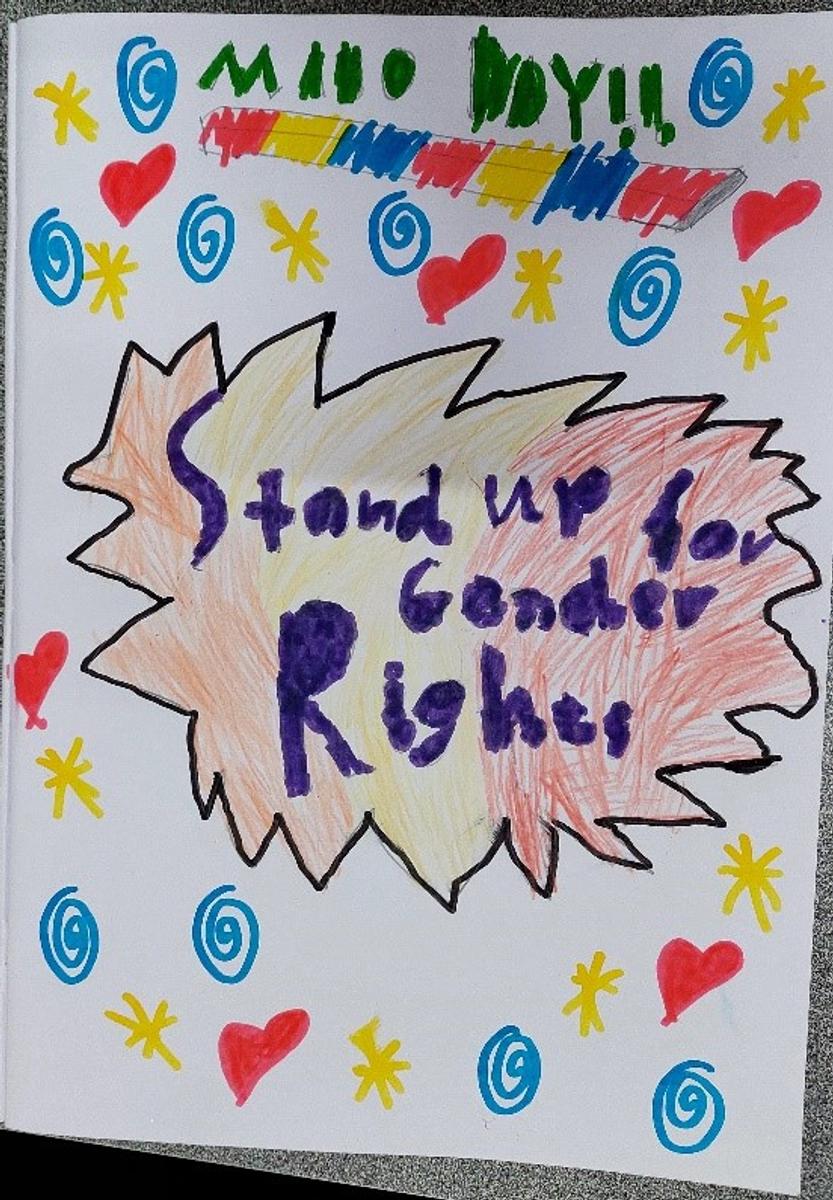 MABO DAY!!
Stand up for
Gender
Rights